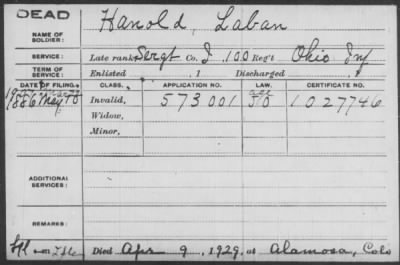 DEAD
Harold, Laban
NAME OF SOLDIER:
SERVICE: Late rank, Sergt Co. I, 100 Reg't Ohio Inf
TERM OF SERVICE: Enlisted , 1 Discharged , 1
DATE OF FILING. CLASS. APPLICATION NO. LAW. CERTIFICATE NO.
1886 May Invalid, 573001 1027746
Widow,
Minor,
ADDITIONAL SERVICES:
REMARKS:
Died Apr 9, 1929, at Alamosa, Colo